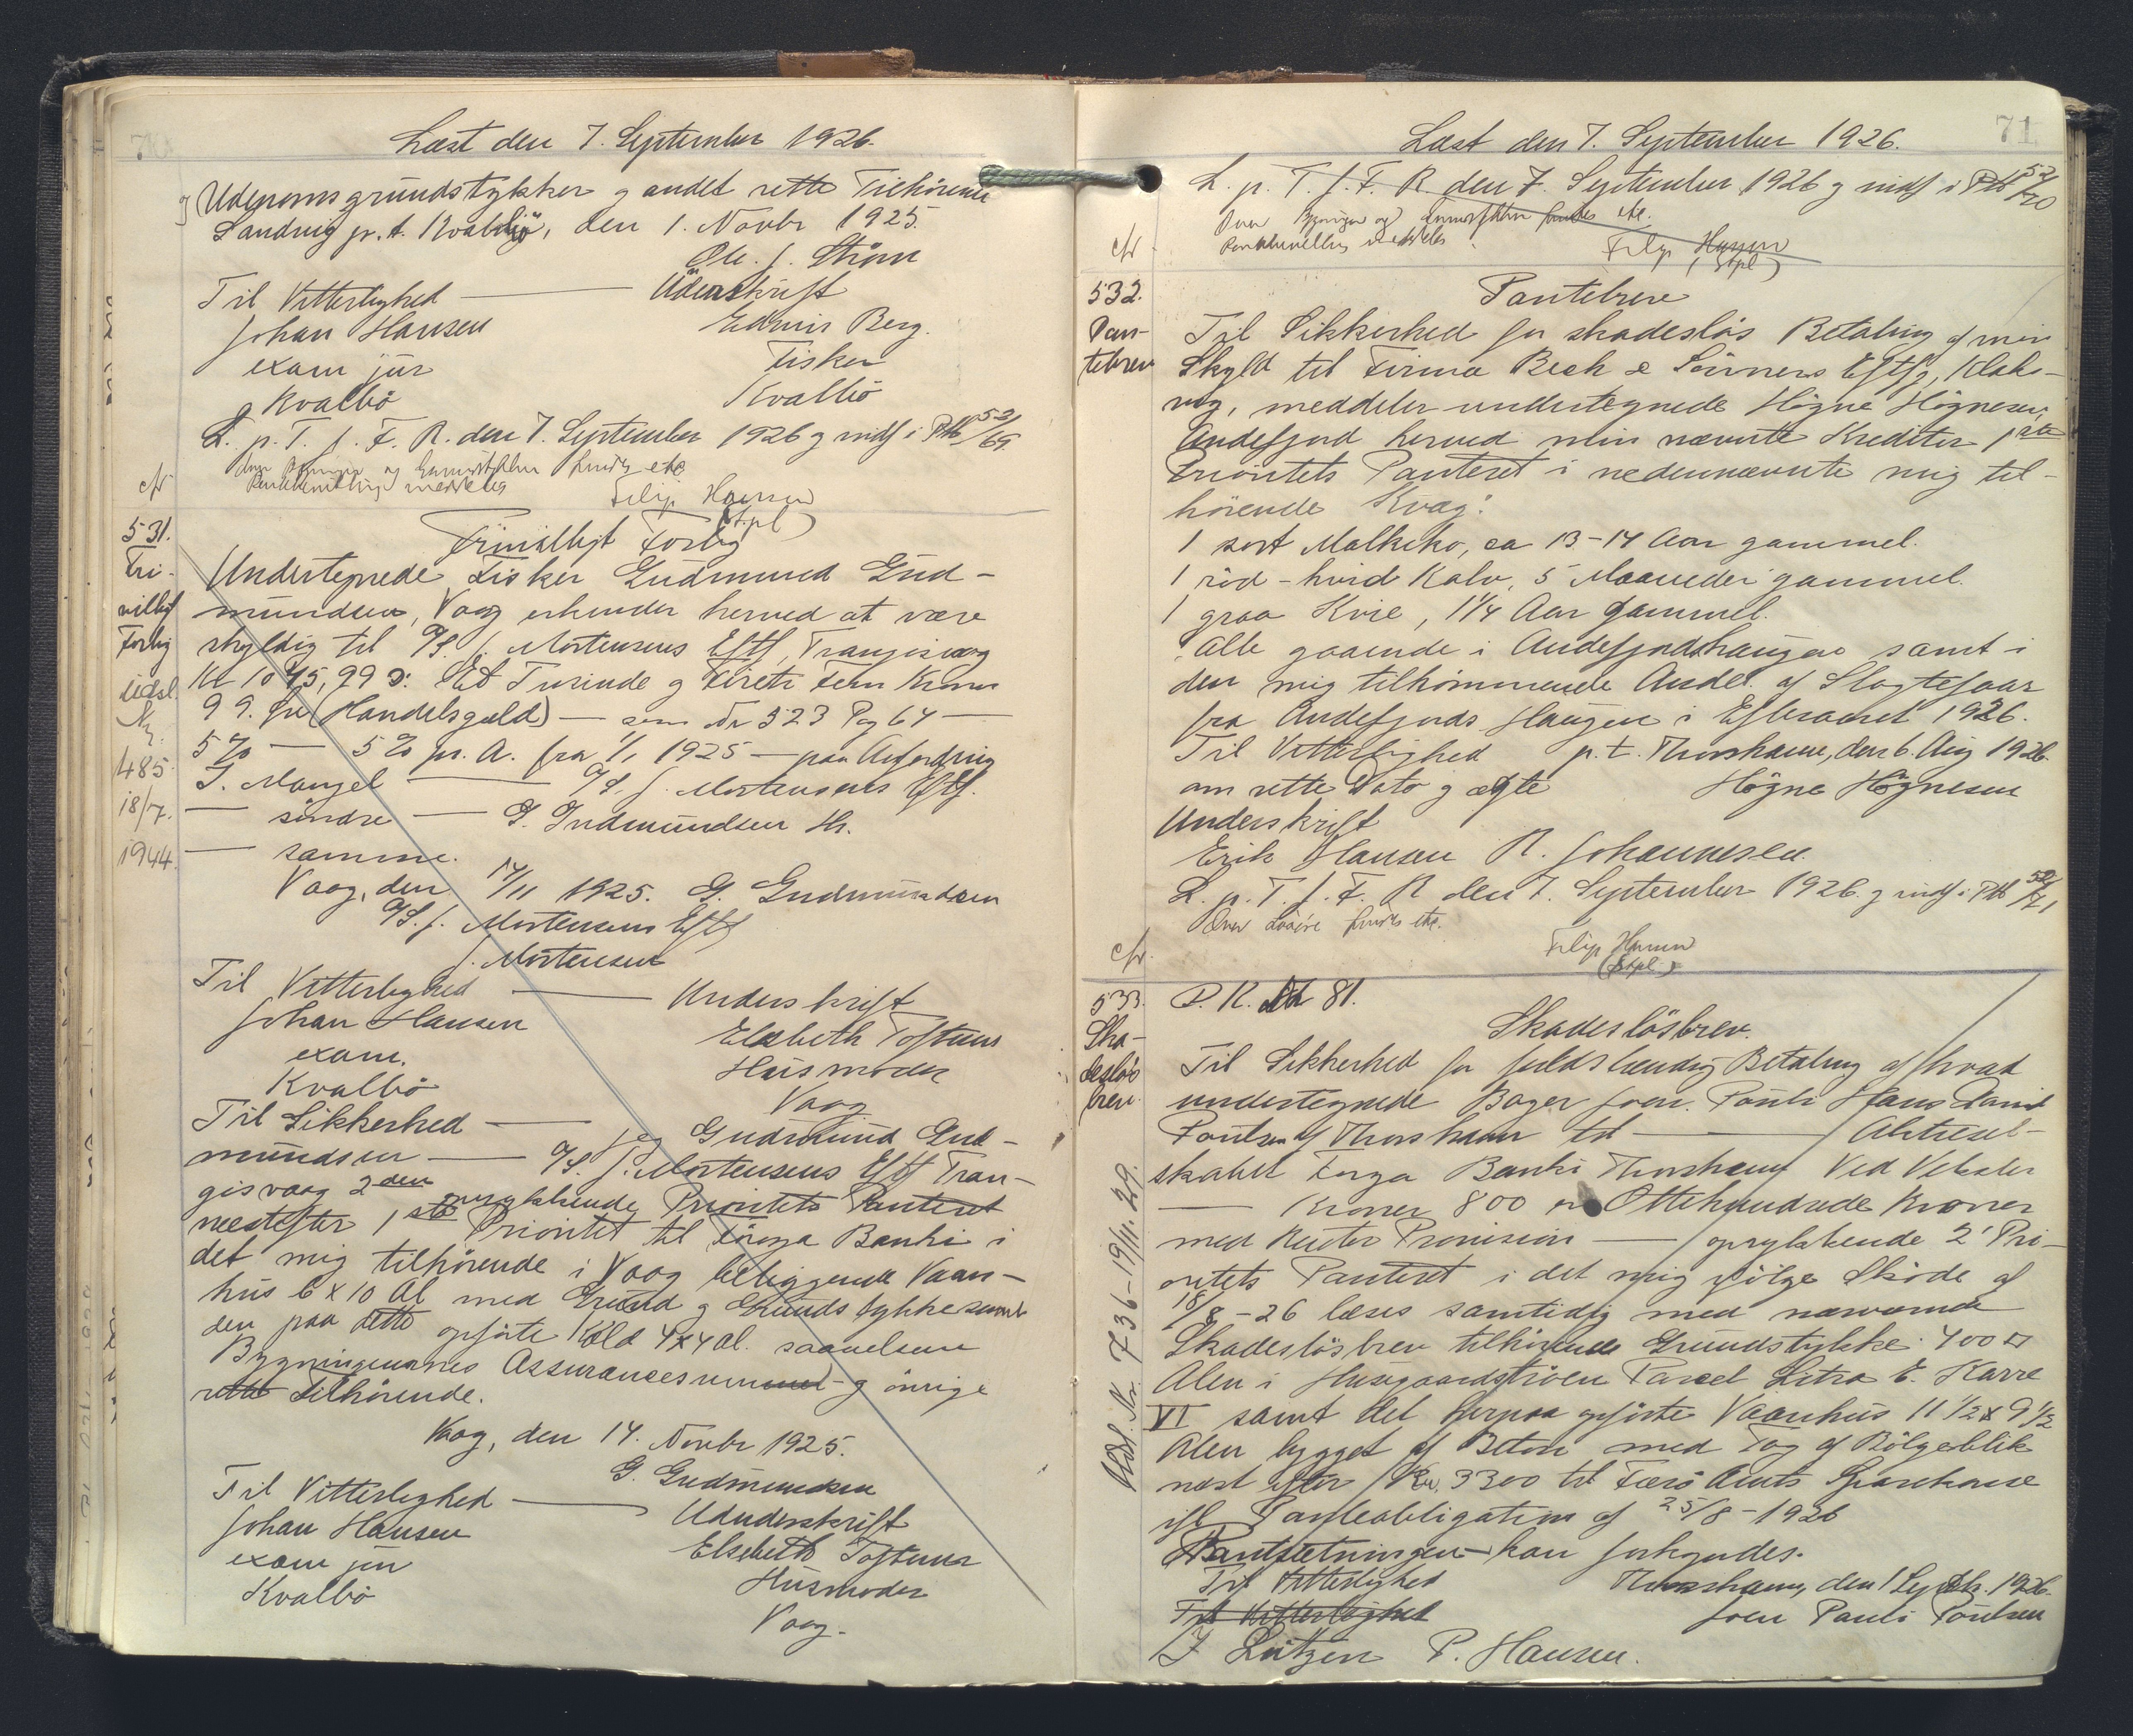 Læst den 7. September 1926.
g Udenomsgrundstykker g andet rette Tilhørende
Sandvig p.t. Kvalbø, den 1. Novbr 1925.
Ole. J. Strøm
Til Vitterlighed — Underskrift
Johan Hansen
Edmir Berg.
exam jur
Fisker
Kvalbø
Kvalbø
L. p. T. f. F. R. den 7. September 1926 g indf i Ptb 52/69.
over Bygninger og Grundstykker findes etc
Pantheftelser meddeles
cfr
Filip Hansen
(Stpl)
531.
Fri-
villigt
Forlig
Udsl.
Nr.
485.
18/7.
1944.
Frivilligt Forlig
Undertegnede Fisker Gudmund Gud-
mundsen, Vaag erkender herved at være
skyldig til A/S. J. Mortensens Eftf, Trangisvaag
Kr 1045,99 ɔ: Et Tusinde g Fireti Fem Kroner
99. Øre (Handelsgæld) — som Nr 523 Pag 64 —
5 % — 5 % pr. A. fra 1/1 1925 — paa Anfordring
I. Mangel — A/S. J. Mortensens Eftf.
— søndre — G. Gudmundsen Hr.
— samme.
Vaag, den 14/11 1925. G. Gudmundsen
A/S. J. Mortensens Eftf
J. Mortensen
Til Vitterlighed — Underskrift
Johan Hansen
Elsebeth Toftum
exam.
Husmoder
Kvalbø
Vaag
Til Sikkerhed — jeg Gudmund Gud-
mundsen — A/S. J. Mortensens Eftf Tran-
gisvaag 2den oprykkende Prioritets Panteret
næstefter 1ste Prioritet til Föroya Banki i
det mig tilhørende i Vaag beliggende Vaan-
hus 6 x 10 Al med Grund g Grundstykke samt
den paa dette opførte Kold 4x4 al. saavelsom
Bygningernes Assurancesummer g øvrige
rette Tilhørende.
Vaag, den 14. Novbr 1925.
G. Gudmundsen
Til Vitterlighed — Underskrift
Johan Hansen
Elsebeth Toftum
exam jur
Husmoder
Kvalbø
Vaag.
71
Læst den 7. September 1926.
L. p. T. f. F. R. den 7. September 1926 g indf i Ptb 52/70
Over Bygninger og Grundstykker findes etc.
Pantheftelser meddeles.
cfr.
Filip Hansen
(Stpl)
532.
Pan-
tebrev
Pantebrev
Til Sikkerhed for skadesløs Betaling af min
Skyld til Firma Bech & Sönners Eftflg, Klaks-
vig, meddeler undertegnede Högne Högnesen,
Andefjord herved min nævnte Kreditor 1ste
Prioritets Panteret i nedennævnte mig til-
hørende Kvæg:
1 sort Malkeko, ca 13-14 Aar gammel.
1 rød-hvid Kalv, 5 Maaneder gammel.
1 graa Kvie, 1¼ Aar gammel.
Alle gaaende i Andefjordshaugen samt i
den mig tilkommende Andel af Slagtefaar
fra Andefjords Haugen i Efteraaret 1926.
Til Vitterlighed p.t. Thorshavn, den 6. Aug 1926.
om rette Dato g ægte
Högne Högnesen
Underskrift
Erik Hansen R. Johannesen.
L. p. T. f. F. R den 7. September 1926. g indf i Ptb 52/71
Over Løsøre findes etc.
cfr.
Filip Hansen
(Stpl.)
533.
Ska-
desløs
brev.
Udsl. Nr. 736 - 19/11. 29.
D. R. Litr 81.
Skadesløsbrev.
Til Sikkerhed for fuldstændig Betaling af hvad
undertegnede Bager Joen Pauli Hans David
Poulsen af Thorshavn til — Aktiesel-
skabet Føroya Banki Thorshavn Ved Veksler
— Kroner 800 er Ottehundrede Kroner
med Renter Provision — oprykkende 2' Pri-
oritets Panteret i det mig ifølge Skøde af
18/8 - 26 læses samtidig med nærværende
Skadesløsbrev tilhørende Grundstykke. 400 □
Alen i Husegaardstrøen Parcel Litra E. Karre
VI samt det herpaa opførte Vaanhus 11 1/2 x 9 1/2
Alen bygget af Beton med Tag af Bølgeblik
næst efter Kr. 3300 til Færø Amts Sparekasse
ifl Panteobligation af 25/8 - 1926
Pantsætningen kan forkyndes.
Til Vitterlighed Thorshavn, den 1 Septb. 1926.
Til Vitterlighed
Joen Pauli Poulsen
J Lützen P. Hansen.